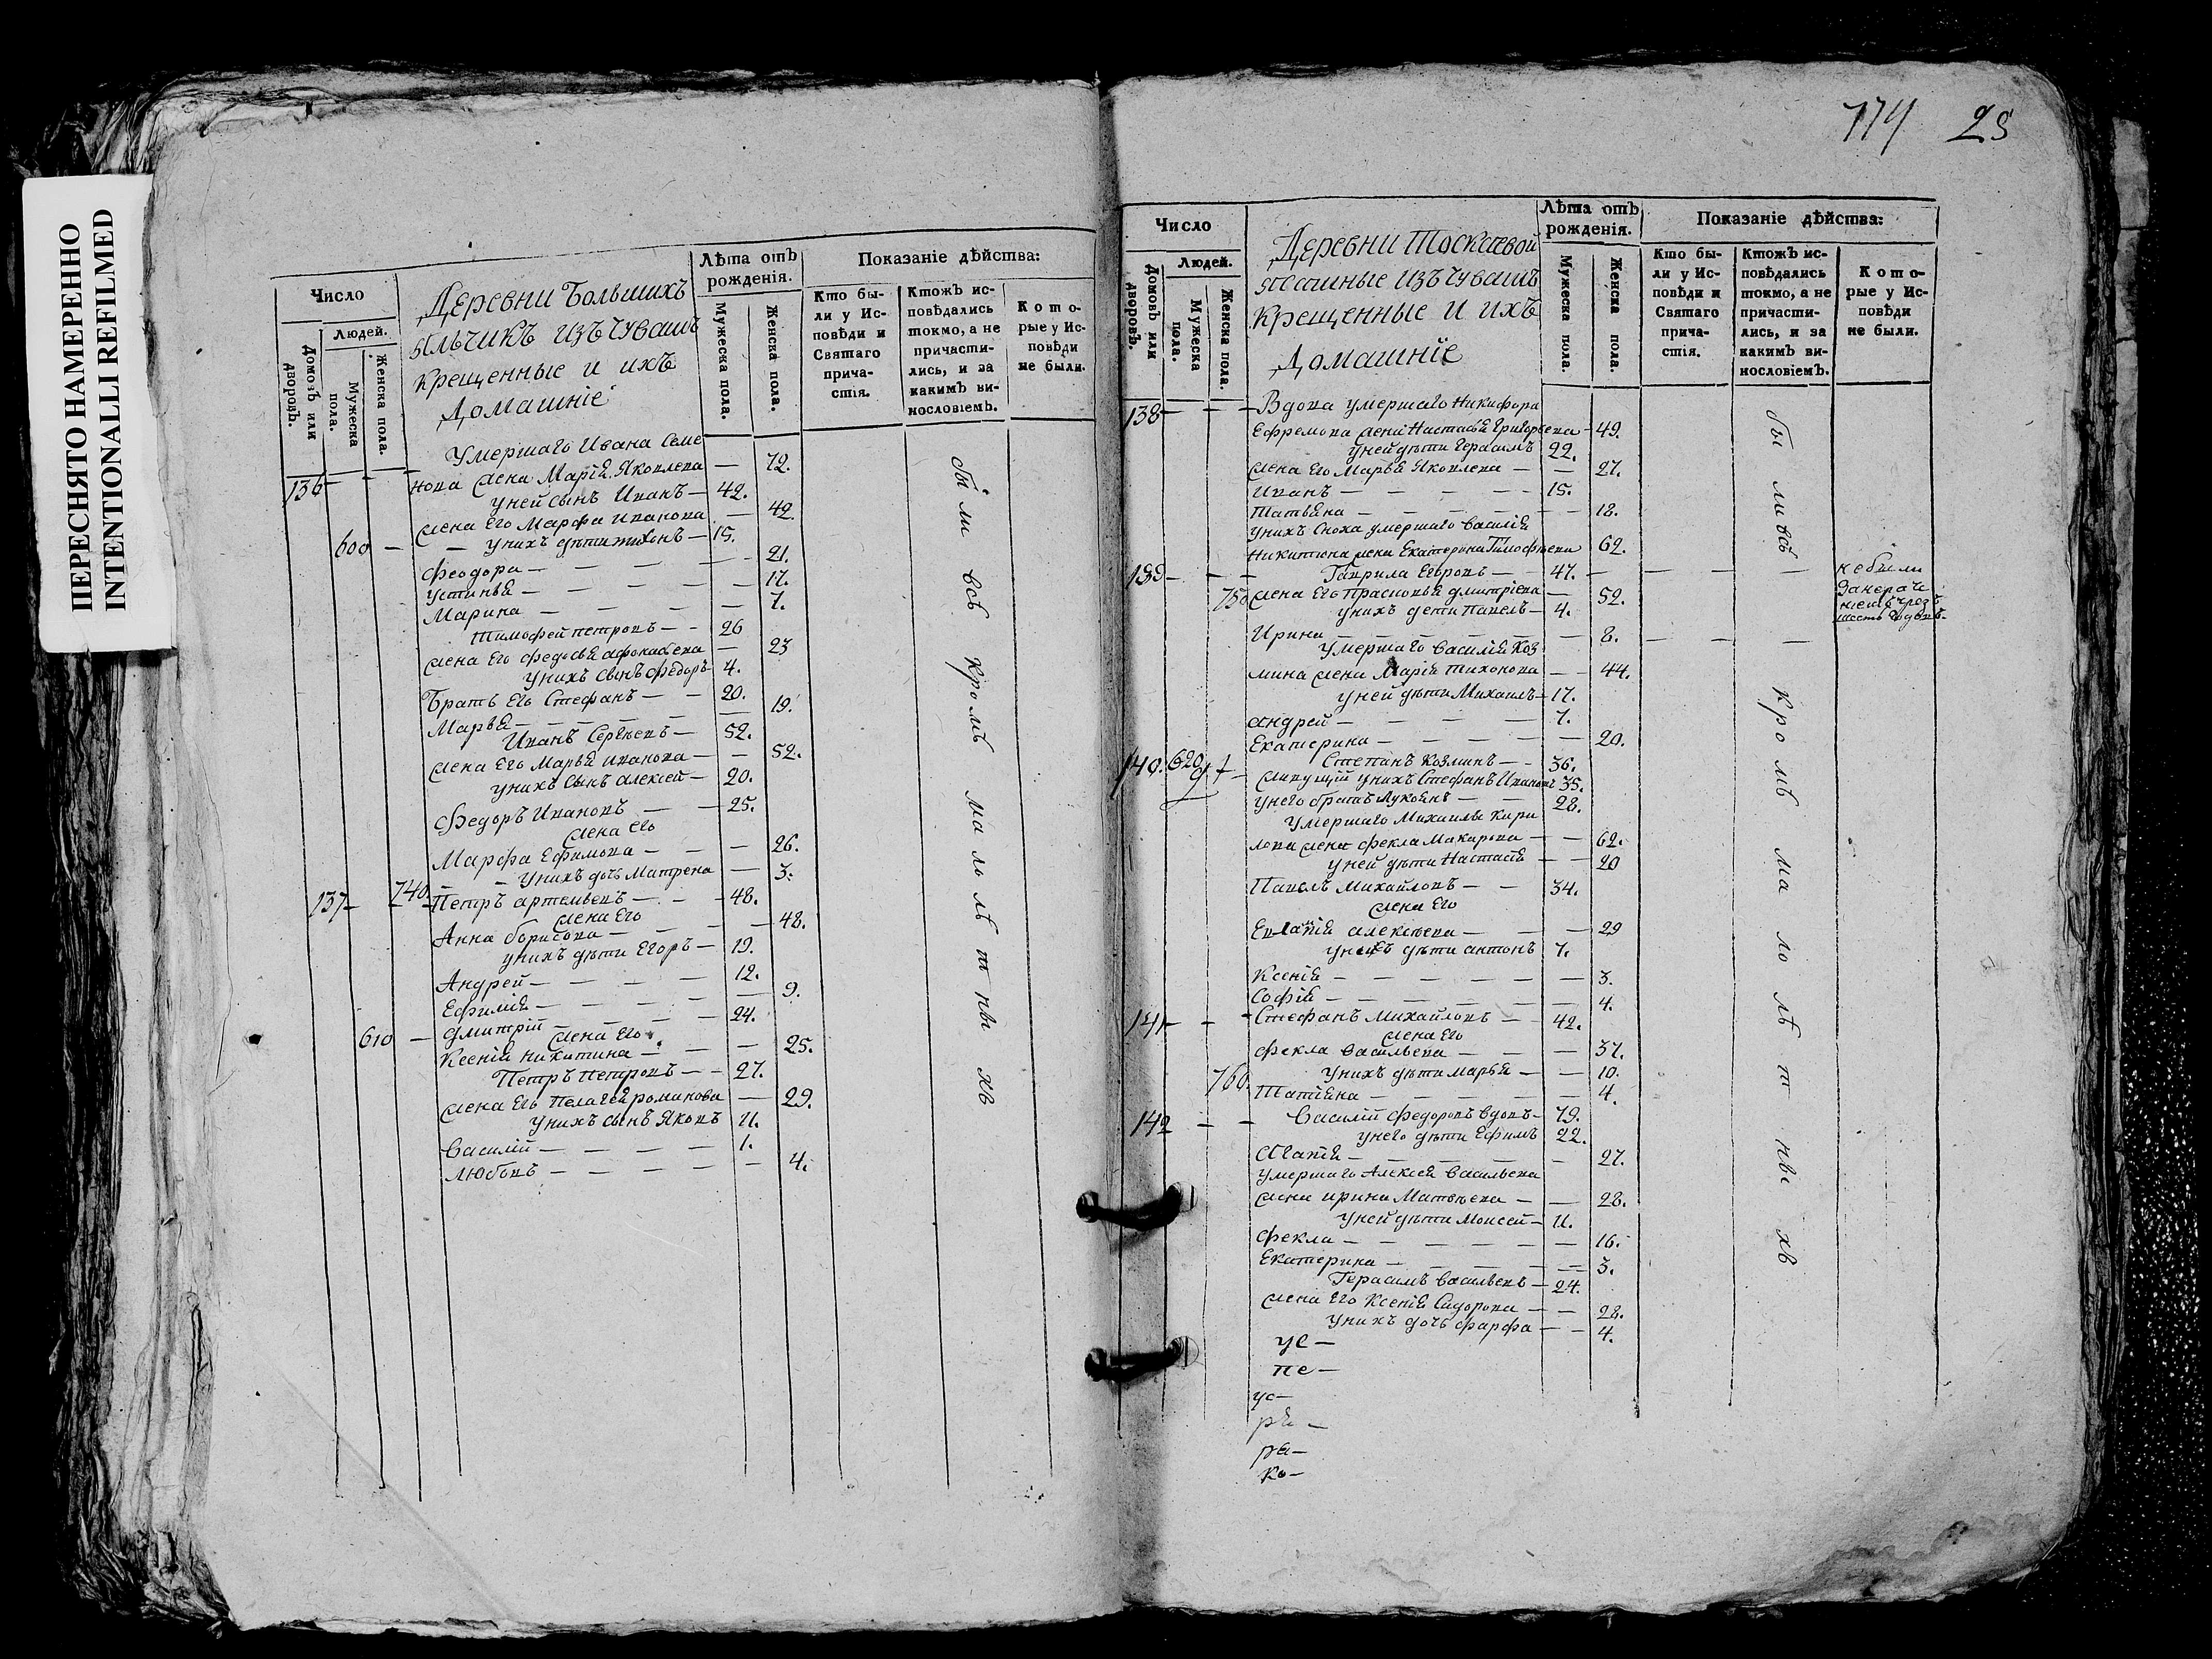 ПЕРЕСНЯТО НАМЕРЕННО
INTENTIONALLI REFILMED
Число
Людей.
Домовъ или дворовъ.
Мужеска пола.
Женска пола.
Деревни Большихъ
яльчикъ изъ чувашъ
крещенные и ихъ
Домашніе
Лѣта отъ рожденія.
Мужеска пола.
Женска пола.
Показаніе дѣйства:
Кто были у Исповѣди и Святаго причастія.
Ктожъ исповѣдались токмо, а не причастились, и за какимъ винословіемъ.
Которые у Исповѣди не были.
Умершаго Ивана Семе
136 — — нова жена Марія Яковлева — 72.
у ней сынъ Иванъ — 42.
жена его Марфа Иванова — 42.
600 — у нихъ дѣти тихонъ — 15.
Феодора — — — — 21.
Устинья — — — — 17.
Марина — — — — 7.
Тимофей петровъ — 26
жена его федосья афонасьева — 23
у нихъ сынъ федоръ 4.
Братъ его Стефанъ — 20.
Марья — — — — 19.
Иванъ Сергѣевъ — 52.
жена его Марья Иванова — 52.
у нихъ сынъ алексей — 20.
Федоръ Ивановъ — — 25.
жена его
Марфа Ефимова — — — 26.
740 — у нихъ дочь Матрена — 3.
137 — Петръ артемьевъ — — 48.
жена его
Анна борисова — — — 48.
у нихъ дѣти Егоръ — 19.
Андрей — — — — 12.
Ефимія — — — — 9.
610 — дмитрій — — — 24.
жена его
Ксенія никитина — — — 25.
Петръ Петровъ — — 27.
жена его Пелагея романова — 29.
у нихъ сынъ Яковъ 11.
Василій — — — — 1.
любовь — — — — 4.
были всѣ кромѣ малолѣтныхъ
114 25
Число
Людей.
Домовъ или дворовъ.
Мужеска пола.
Женска пола.
Деревни Тоскаевой
ясашные изъ чувашъ
крещенные и ихъ
Домашніе
Лѣта отъ рожденія.
Мужеска пола.
Женска пола.
Показаніе дѣйства:
Кто были у Исповѣди и Святаго причастія.
Ктожъ исповѣдались токмо, а не причастились, и за какимъ винословіемъ.
Которые у Исповѣди не были.
138 — — — Вдова умершаго Никифора
Ефремова жена Настасья Григорьева — 49.
у ней дѣти Герасимъ 22.
жена его Марья Яковлева — — 27.
Иванъ — — — — — 15.
Татьяна — — — — — 18.
у нихъ сноха умершаго василія
Никитина жена Екатерина Тимофѣева 62.
139 — — — Гаврила Егоровъ — — 47. — — — — не были
750 жена его Прасковья дмитріева — 52.
у нихъ дети Павелъ — 4.
Ирина — — — — — 8. — — —
умершаго василія Коз
мина жена Марія тихонова — — 44.
у ней дѣти Михаилъ — 17.
андрей — — — — 7.
Екатерина — — — — — 20.
140. 620 Степанъ Козминъ — — 36.
живущій у нихъ Стефанъ Ивановъ 35.
у него братъ Лукоянъ — — 28.
умершаго Михаилы Кири
лова жена фекла Макарова — — 62.
у ней дѣти Настасія — — 20
Павелъ Михайловъ — — 34.
жена его
алексѣева — — — 29
дѣти антонъ 7.
Ксенія — — — — — 3.
Софія — — — — — 4.
141 — — Стефанъ Михайловъ — — 42.
жена его
фекла васильева — — — 37.
760. у нихъ дѣти марья — — 10.
Татіяна — — — — — 4.
142 — — Василій федоровъ вдовъ — 79.
у него дѣти Ефимъ 22.
Агапія — — — — — 27.
умершаго Алексея васильева
жена ирина Матвѣева — — 28.
у ней дѣти Моисей — 11.
Фекла — — — — — 16.
Екатерина — — — — 3.
Герасимъ васильевъ — 24.
жена его Ксенія Сидорова — — 28.
у нихъ дочь фарфа — — 4.
ус —
пе —
ус —
ря —
ра —
ко —
были всѣ кромѣ малолѣтныхъ